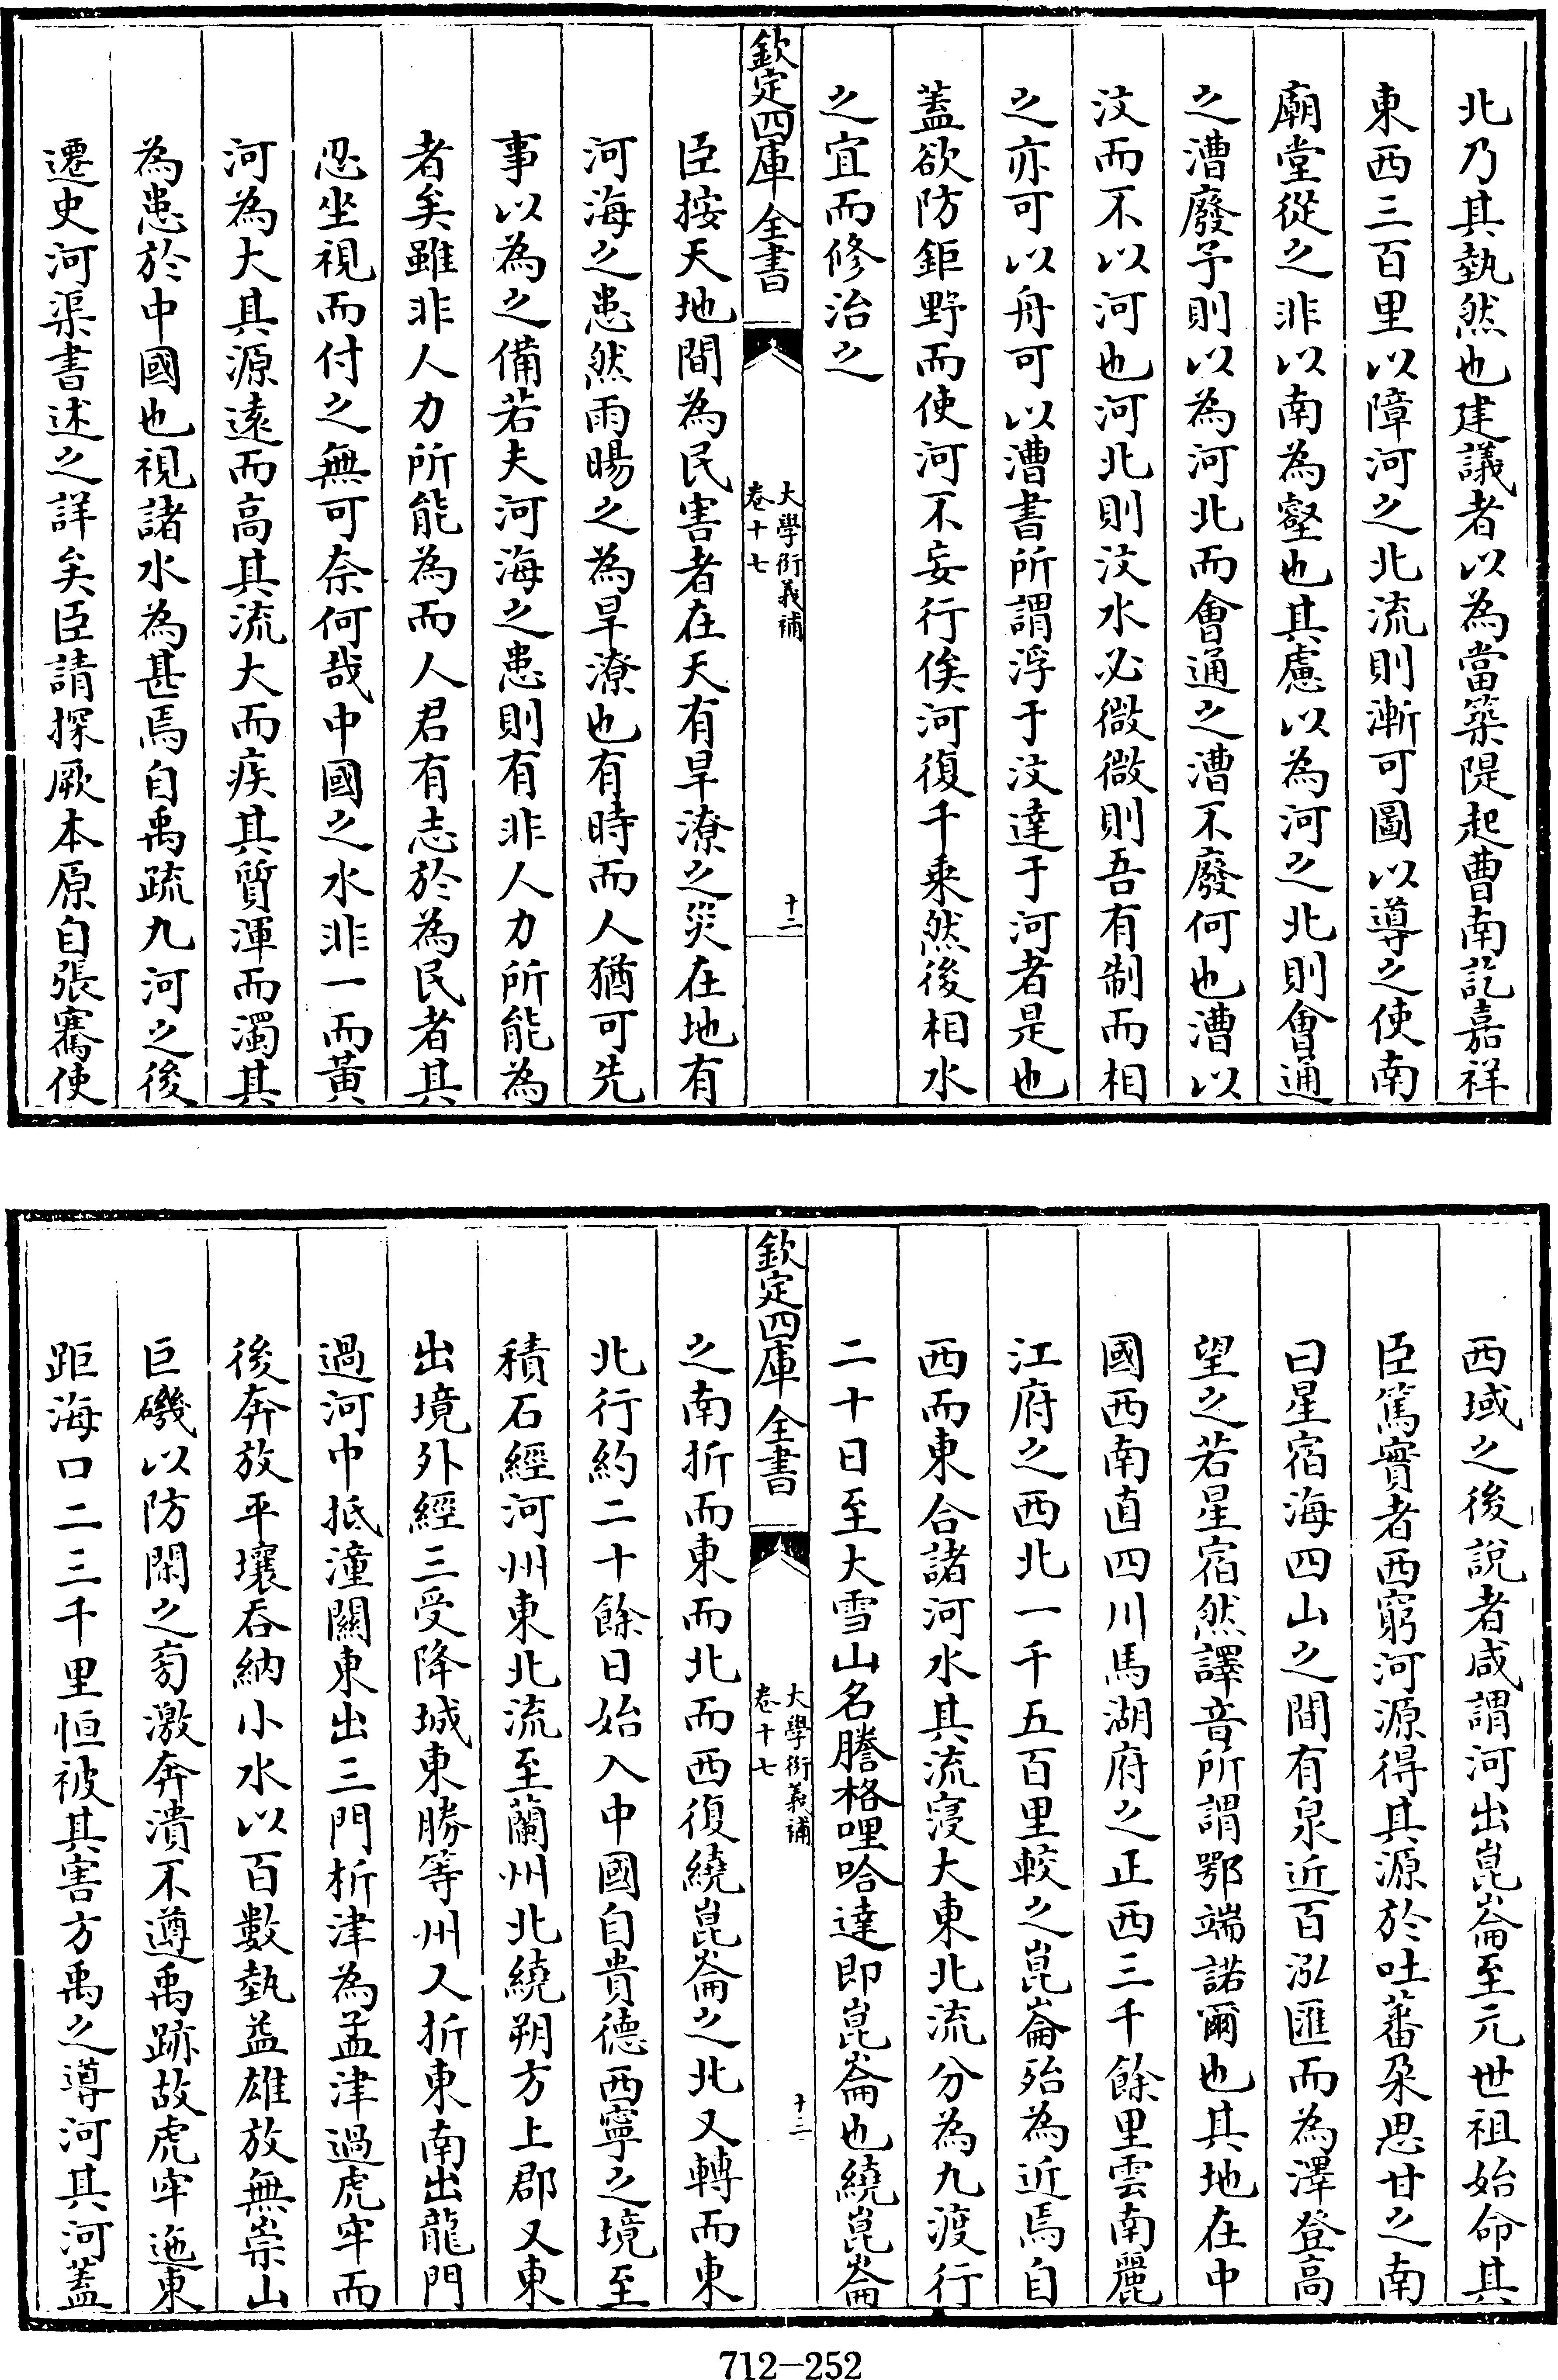 北乃其埶然也建議者以為當築隄起曹南訖嘉祥
東西三百里以障河之北流則漸可圖以導之使南
廟堂從之非以南為壑也其慮以為河之北則會通
之漕廢予則以為河北而會通之漕不廢何也漕以
汶而不以河也河北則汶水必微微則吾有制而相
之亦可以舟可以漕書所謂浮于汶達于河者是也
蓋欲防鉅野而使河不妄行俟河復千乗然後相水
之宜而修治之
欽定四庫全書
大學衍義補
卷十七
十二
臣按天地間為民害者在天有旱潦之災在地有
河海之患然雨暘之為旱潦也有時而人猶可先
事以為之備若夫河海之患則有非人力所能為
者矣雖非人力所能為而人君有志於為民者其
忍坐視而付之無可奈何哉中國之水非一而黃
河為大其源遠而高其流大而疾其質渾而濁其
為患於中國也視諸水為甚焉自禹疏九河之後
遷史河渠書述之詳矣臣請探厥本原自張騫使
西域之後說者咸謂河出崑崙至元世祖始命其
臣篤實者西窮河源得其源於吐蕃朶思甘之南
曰星宿海四山之間有泉近百泓匯而為澤登高
望之若星宿然譯音所謂鄂端諾爾也其地在中
國西南直四川馬湖府之正西三千餘里雲南麗
江府之西北一千五百里較之崑崙殆為近焉自
西而東合諸河水其流寖大東北流分為九渡行
二十日至大雪山名騰格哩哈達即崑崙也繞崑崙
欽定四庫全書
大學衍義補
卷十七
十三
之南折而東而北而西復繞崑崙之北又轉而東
北行約二十餘日始入中國自貴德西寧之境至
積石經河州東北流至蘭州北繞朔方上郡又東
出境外經三受降城東勝等州又折東南出龍門
過河中抵潼關東出三門析津為孟津過虎牢而
後奔放平壤吞納小水以百數埶益雄放無崇山
巨磯以防閑之匉激奔潰不遵禹跡故虎牢迤東
距海口二三千里恒被其害方禹之導河其河蓋
712-252